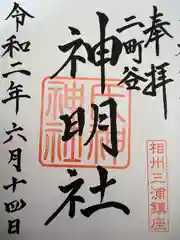 奉拝
二町谷
神明社
令和二年六月十四日
相州三浦鎮座